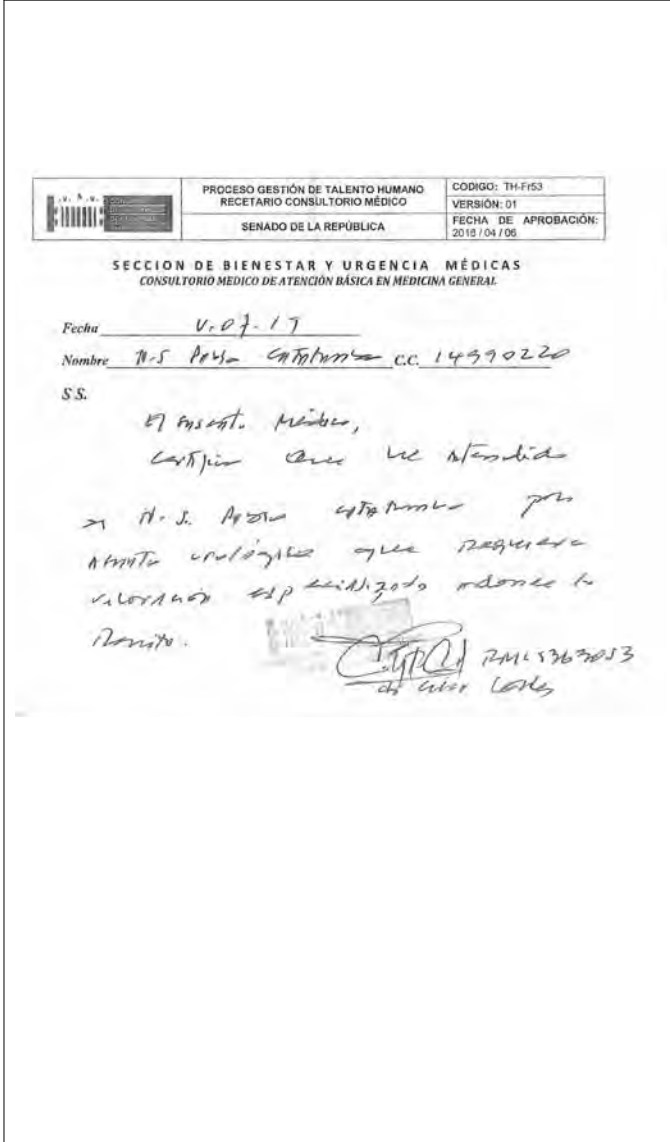 PROCESO GESTIÓN DE TALENTO HUMANO
RECETARIO CONSULTORIO MÉDICO
SENADO DE LA REPÚBLICA
CODIGO: TH-Fr53
VERSIÓN: 01
FECHA DE APROBACIÓN:
2016/04/06
SECCION DE BIENESTAR Y URGENCIA MÉDICAS
CONSULTORIO MEDICO DE ATENCIÓN BÁSICA EN MEDICINA GENERAL
Fecha V.07.19
Nombre H.S Pablo Catatumbo C.C. 14990220
S.S.
El suscrito Médico,
Certifica que he atendido
a H.S. Pablo Catatumbo por
urológica que requiere
valoración especializada
Remito.